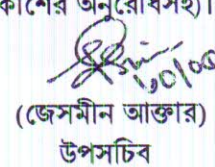 কাশের অনুরোধসহ)।
(জেসমীন আক্তার)
উপসচিব